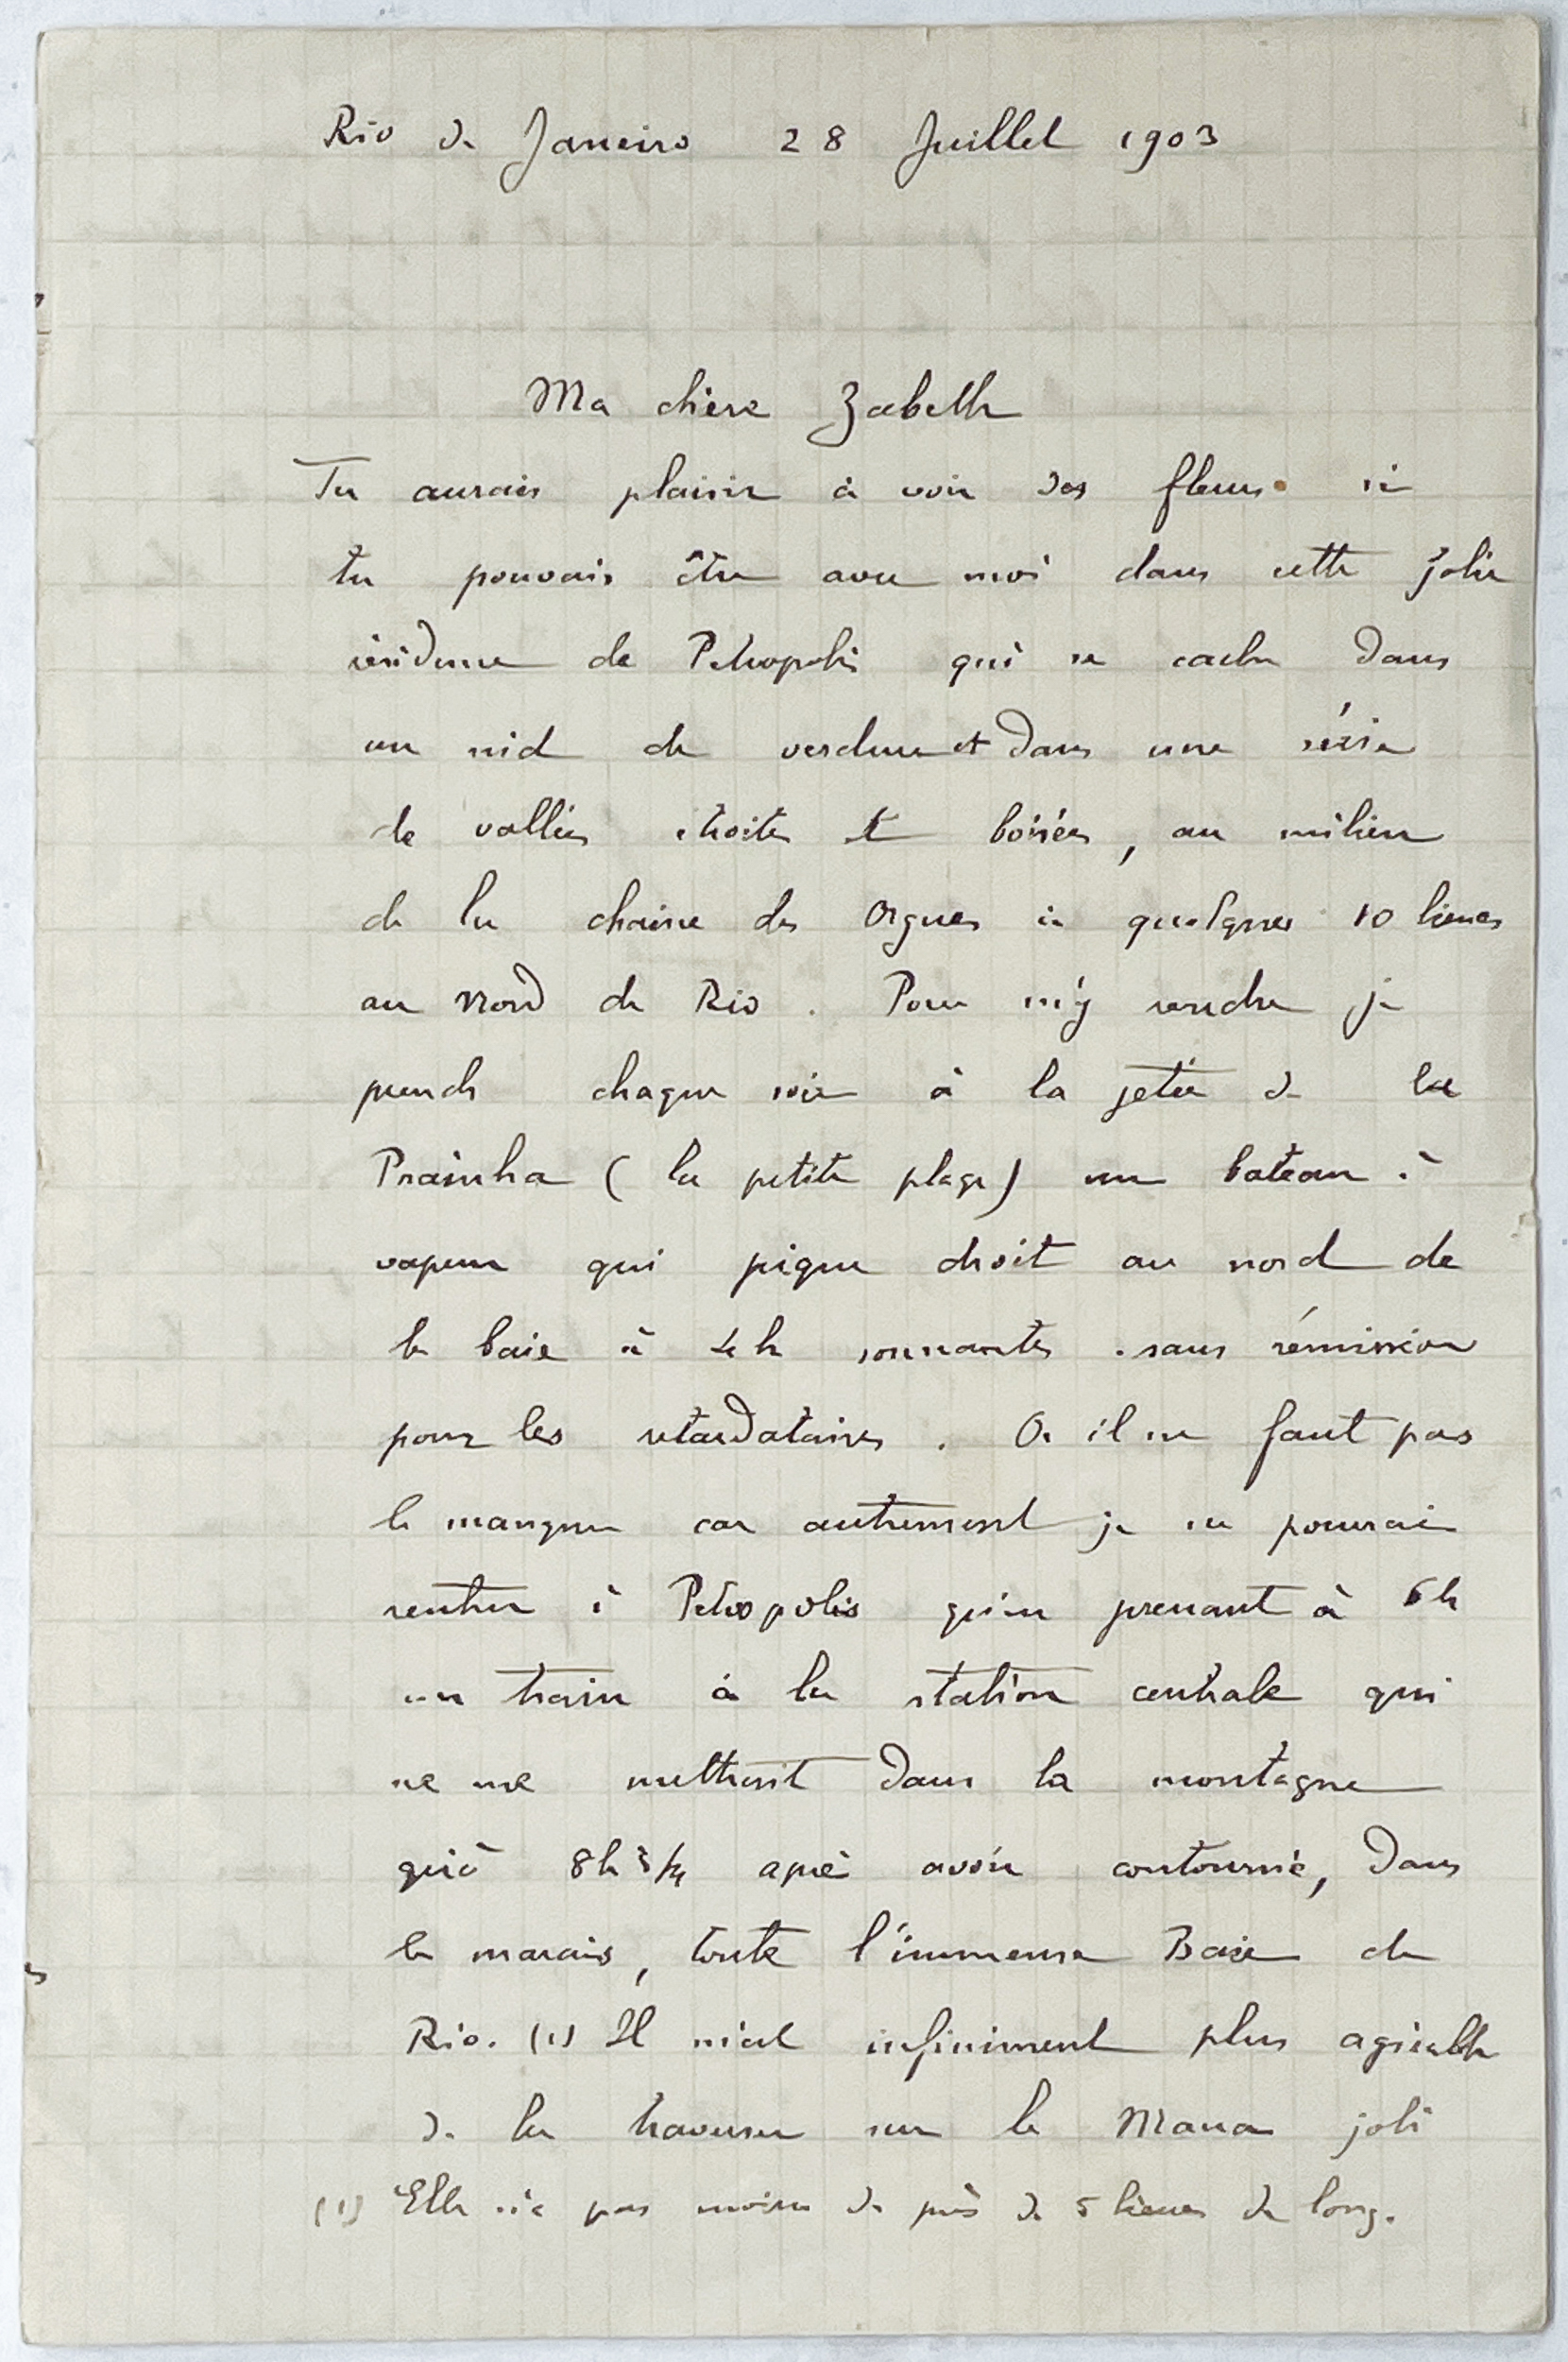 Rio de Janeiro 28 Juillet 1903
Ma chère Zabeth
Tu aurais plaisir à voir des fleurs si
tu pouvais être avec moi dans cette jolie
résidence de Petropolis qui se cache dans
un nid de verdure et dans une série
de vallées étroites et boisées, au milieu
de la chaine des Orgues à quelques 10 lieues
au Nord de Rio. Pour m'y rendre je
prends chaque soir à la jetée de la
Prainha (la petite plage) un bateau à
vapeur qui pique droit au nord de
la baie à 4h sonnantes sans rémission
pour les retardataires. Or il ne faut pas
le manquer car autrement je ne pourrais
rentrer à Petropolis qu'en prenant à 6h
un train à la station centrale qui
ne me mettrait dans la montagne
qu'à 8h 3/4 après avoir contourné, dans
le marais, toute l'immense Baie de
Rio. (1) Il m'est infiniment plus agréable
de la traverser sur le Maua joli
(1) Elle n'a pas moins de près de 5 lieues de long.